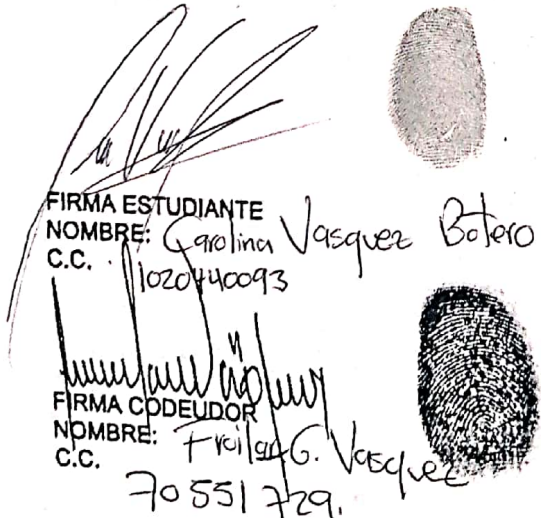 FIRMA ESTUDIANTE
NOMBRE: Carolina Vasquez Botero
C.C. 1020440093
FIRMA CODEUDOR
NOMBRE: Froilan G. Vasquez
C.C. 70551729.